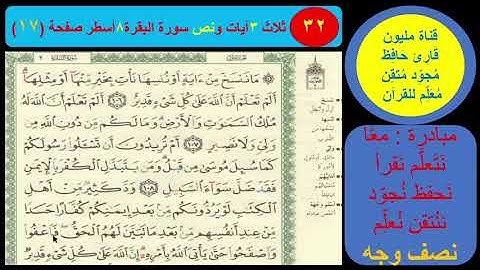 ٣٢
ثلاث ٣ آيات ونص سورة البقرة ٨ أسطر صفحة (١٧)
مَا نَنسَخْ مِنْ ءَايَةٍ أَوْ نُنسِهَا نَأْتِ بِخَيْرٍ مِّنْهَآ أَوْ مِثْلِهَآ
أَلَمْ تَعْلَمْ أَنَّ ٱللَّهَ عَلَىٰ كُلِّ شَىْءٍ قَدِيرٌ ١٠٦ أَلَمْ تَعْلَمْ أَنَّ ٱللَّهَ لَهُۥ
مُلْكُ ٱلسَّمَٰوَٰتِ وَٱلْأَرْضِ وَمَا لَكُم مِّن دُونِ ٱللَّهِ مِن
وَلِىٍّ وَلَا نَصِيرٍ ١٠٧ أَمْ تُرِيدُونَ أَن تَسْـَٔلُوا۟ رَسُولَكُمْ
كَمَا سُئِلَ مُوسَىٰ مِن قَبْلُ وَمَن يَتَبَدَّلِ ٱلْكُفْرَ بِٱلْإِيمَٰنِ
فَقَدْ ضَلَّ سَوَآءَ ٱلسَّبِيلِ ١٠٨ وَدَّ كَثِيرٌ مِّنْ أَهْلِ
ٱلْكِتَٰبِ لَوْ يَرُدُّونَكُم مِّنۢ بَعْدِ إِيمَٰنِكُمْ كُفَّارًا حَسَدًا
مِّنْ عِندِ أَنفُسِهِم مِّنۢ بَعْدِ مَا تَبَيَّنَ لَهُمُ ٱلْحَقُّ فَٱعْفُوا۟
وَٱصْفَحُوا۟ حَتَّىٰ يَأْتِىَ ٱللَّهُ بِأَمْرِهِۦٓ إِنَّ ٱللَّهَ عَلَىٰ كُلِّ شَىْءٍ قَدِيرٌ
قناة مليون
قارئ حافظ
مُجوّد مُتقن
مُعلّم للقرآن
مبادرة : معًا
نَتَعلَّم نَقرأ
نَحفظ نُجوّد
نَتقن نُعلّم
نصف وجه